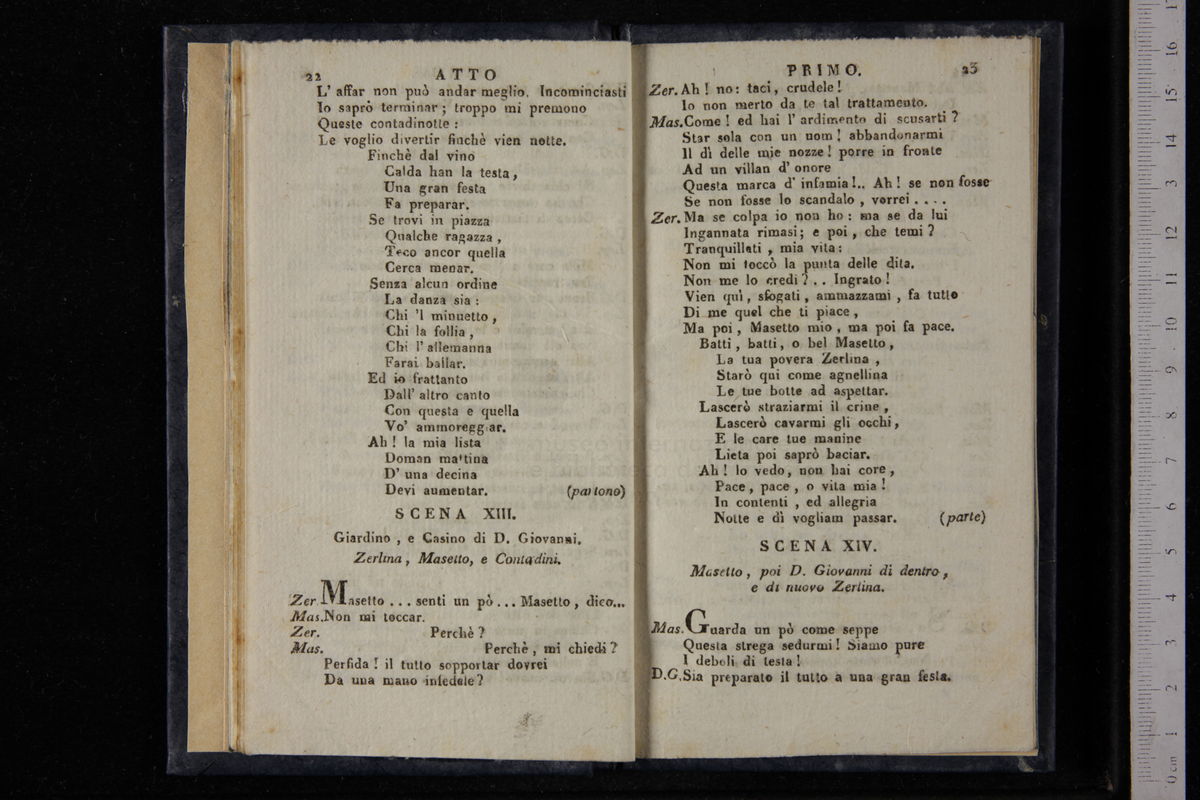 22 ATTO
L' affar non può andar meglio. Incominciasti
Io saprò terminar; troppo mi premono
Queste contadinotte:
Le voglio divertir finchè vien notte.
Finchè dal vino
Calda han la testa,
Una gran festa
Fa preparar.
Se trovi in piazza
Qualche ragazza,
Teco ancor quella
Cerca menar.
Senza alcun ordine
La danza sia:
Chi 'l minuetto,
Chi la follia,
Chi l' allemanna
Farai ballar.
Ed io frattanto
Dall' altro canto
Con questa e quella
Vo' ammoreggiar.
Ah! la mia lista
Doman mattina
D' una decina
Devi aumentar. (partono)
SCENA XIII.
Giardino, e Casino di D. Giovanni.
Zerlina, Masetto, e Contadini.
Zer. Masetto... senti un pò... Masetto, dico...
Mas. Non mi toccar.
Zer. Perchè?
Mas. Perchè, mi chiedi?
Perfida! il tutto sopportar dovrei
Da una mano infedele?
PRIMO. 23
Zer. Ah! no: taci, crudele!
Io non merto da te tal trattamento.
Mas. Come! ed hai l' ardimento di scusarti?
Star sola con un uom! abbandonarmi
Il dì delle mie nozze! porre in fronte
Ad un villan d' onore
Questa marca d' infamia!.. Ah! se non fosse
Se non fosse lo scandalo, vorrei....
Zer. Ma se colpa io non ho: ma se da lui
Ingannata rimasi; e poi, che temi?
Tranquillati, mia vita:
Non mi toccò la punta delle dita.
Non me lo credi?.. Ingrato!
Vien quì, sfogati, ammazzami, fa tutto
Di me quel che ti piace,
Ma poi, Masetto mio, ma poi fa pace.
Batti, batti, o bel Masetto,
La tua povera Zerlina,
Starò qui come agnellina
Le tue botte ad aspettar.
Lascerò straziarmi il crine,
Lascerò cavarmi gli occhi,
E le care tue manine
Lieta poi saprò baciar.
Ah! lo vedo, non hai core,
Pace, pace, o vita mia!
In contenti, ed allegria
Notte e dì vogliam passar. (parte)
SCENA XIV.
Masetto, poi D. Giovanni di dentro,
e di nuovo Zerlina.
Mas. Guarda un pò come seppe
Questa strega sedurmi! Siamo pure
I deboli di testa!
D.G. Sia preparato il tutto a una gran festa.
0 cm 1 2 3 4 5 6 7 8 9 10 11 12 13 14 15 16 17